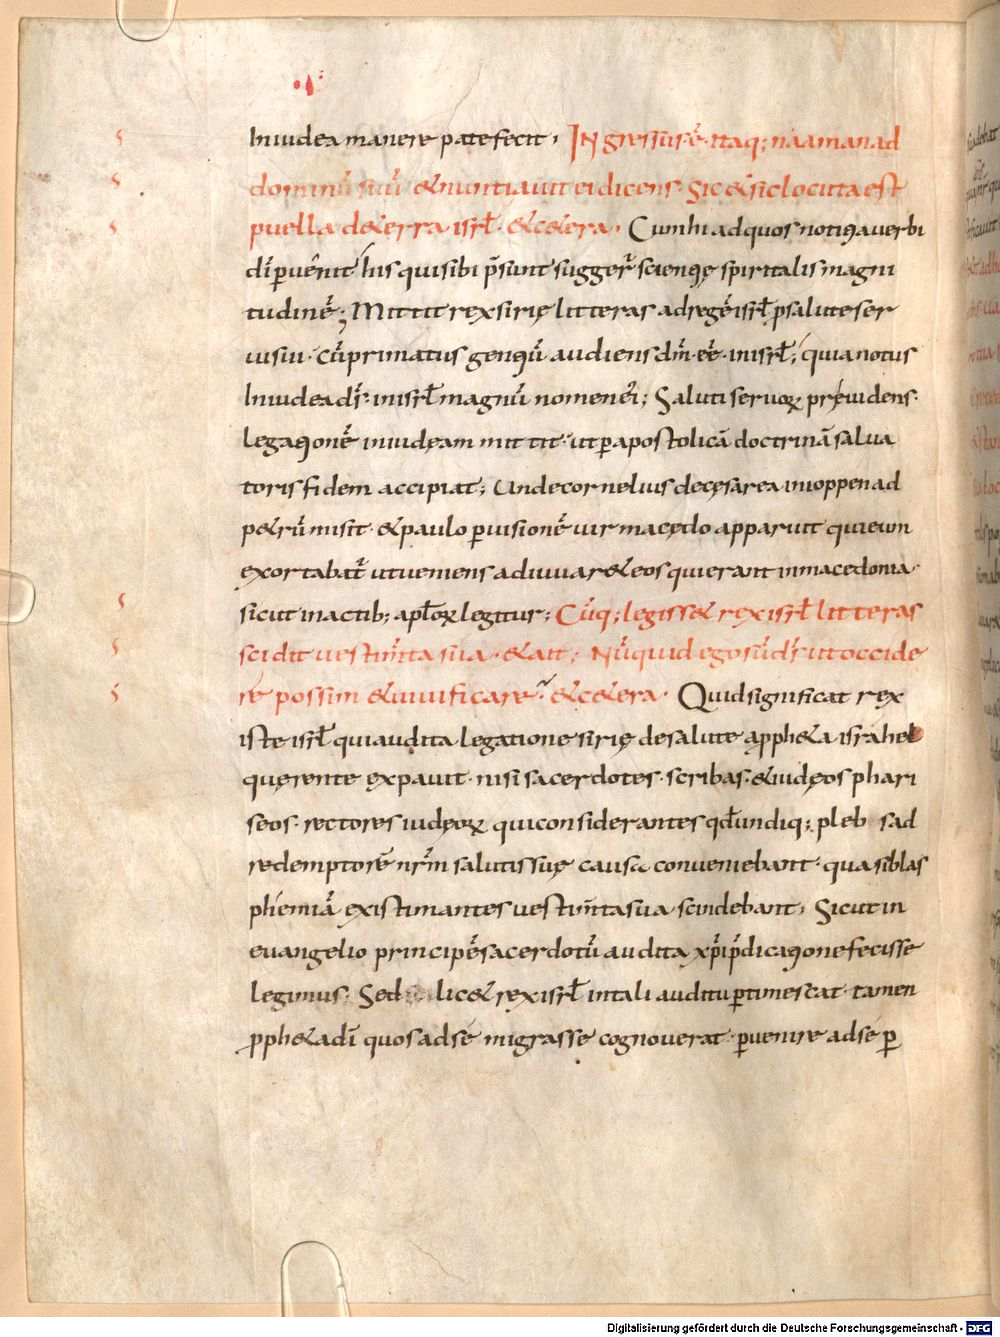 In iudea manere patefecit; Ingressus ē itaq; naaman ad
dominū suū & nuntiauit ei dicens. Sic & sic locuta est
puella de terra isrł. & cetera. Cum hi ad quos notitia uerbi
dī peruenit his qui sibi p̄sunt sugger̄ scientię spiritalis magni
tudinē; Mittit rex sirię litteras ad regē isrł p salute ser
ui sui. cū primatus gentiū audiens dm̄ eē in isrł; quia notus
In iudea ds̄. in isrł magnū nomen ei; Saluti seruoꝝ pręuidens.
legationē in iudęam mittit. ut ꝑ apostolicā doctrinā salua
toris fidem accipiat; Unde cornelius de cęsarea in ioppen ad
petrū misit. & paulo ꝑ uisionē uir macędo apparuit qui eum
exortabat̄ ut ueniens adiuuar& eos qui erant in macedonia.
sicut in actib; aptoꝝ legitur; Cūq; legiss& rex isrł litteras
scidit uestim̄ta sua. & ait; Nūquid ego sū ds̄ ut occide
re possim & uiuificare? & c&era. Quid significat rex
iste isrł qui audita legatione sirię de salute a pph&a israhel
querente expauit. nisi sacerdotes. scribas. & iudęos phari
seos. rectores iudęoꝝ qui considerantes qd̄ undiq; plebs ad
redemptorē nr̄m salutis suę causa conueniebant. quasi blas
phemiā existimantes uestim̄ta sua scindebant; Sicut in
euangelio principē sacerdotū audita xp̄i p̄dicatione fecisse
legimus. Sed lic& rex isrł in tali auditu ꝑtimescat. tamen
pph&a dī quos ad se migrasse cognouerat. ꝑuenire ad se ꝑ
Digitalisierung gefördert durch die Deutsche Forschungsgemeinschaft - DFG